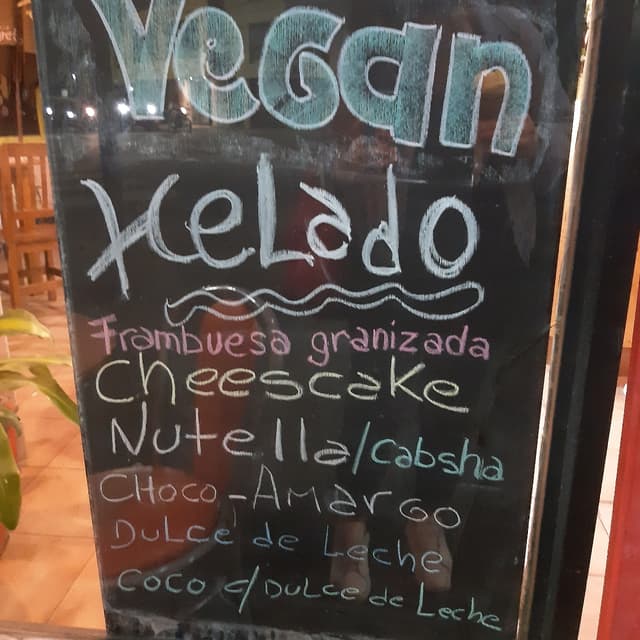 Vegan
Helado
Frambuesa granizada
Cheescake
Nutella/Cabsha
CHoco-Amargo
Dulce de Leche
Coco c/Dulce de Leche